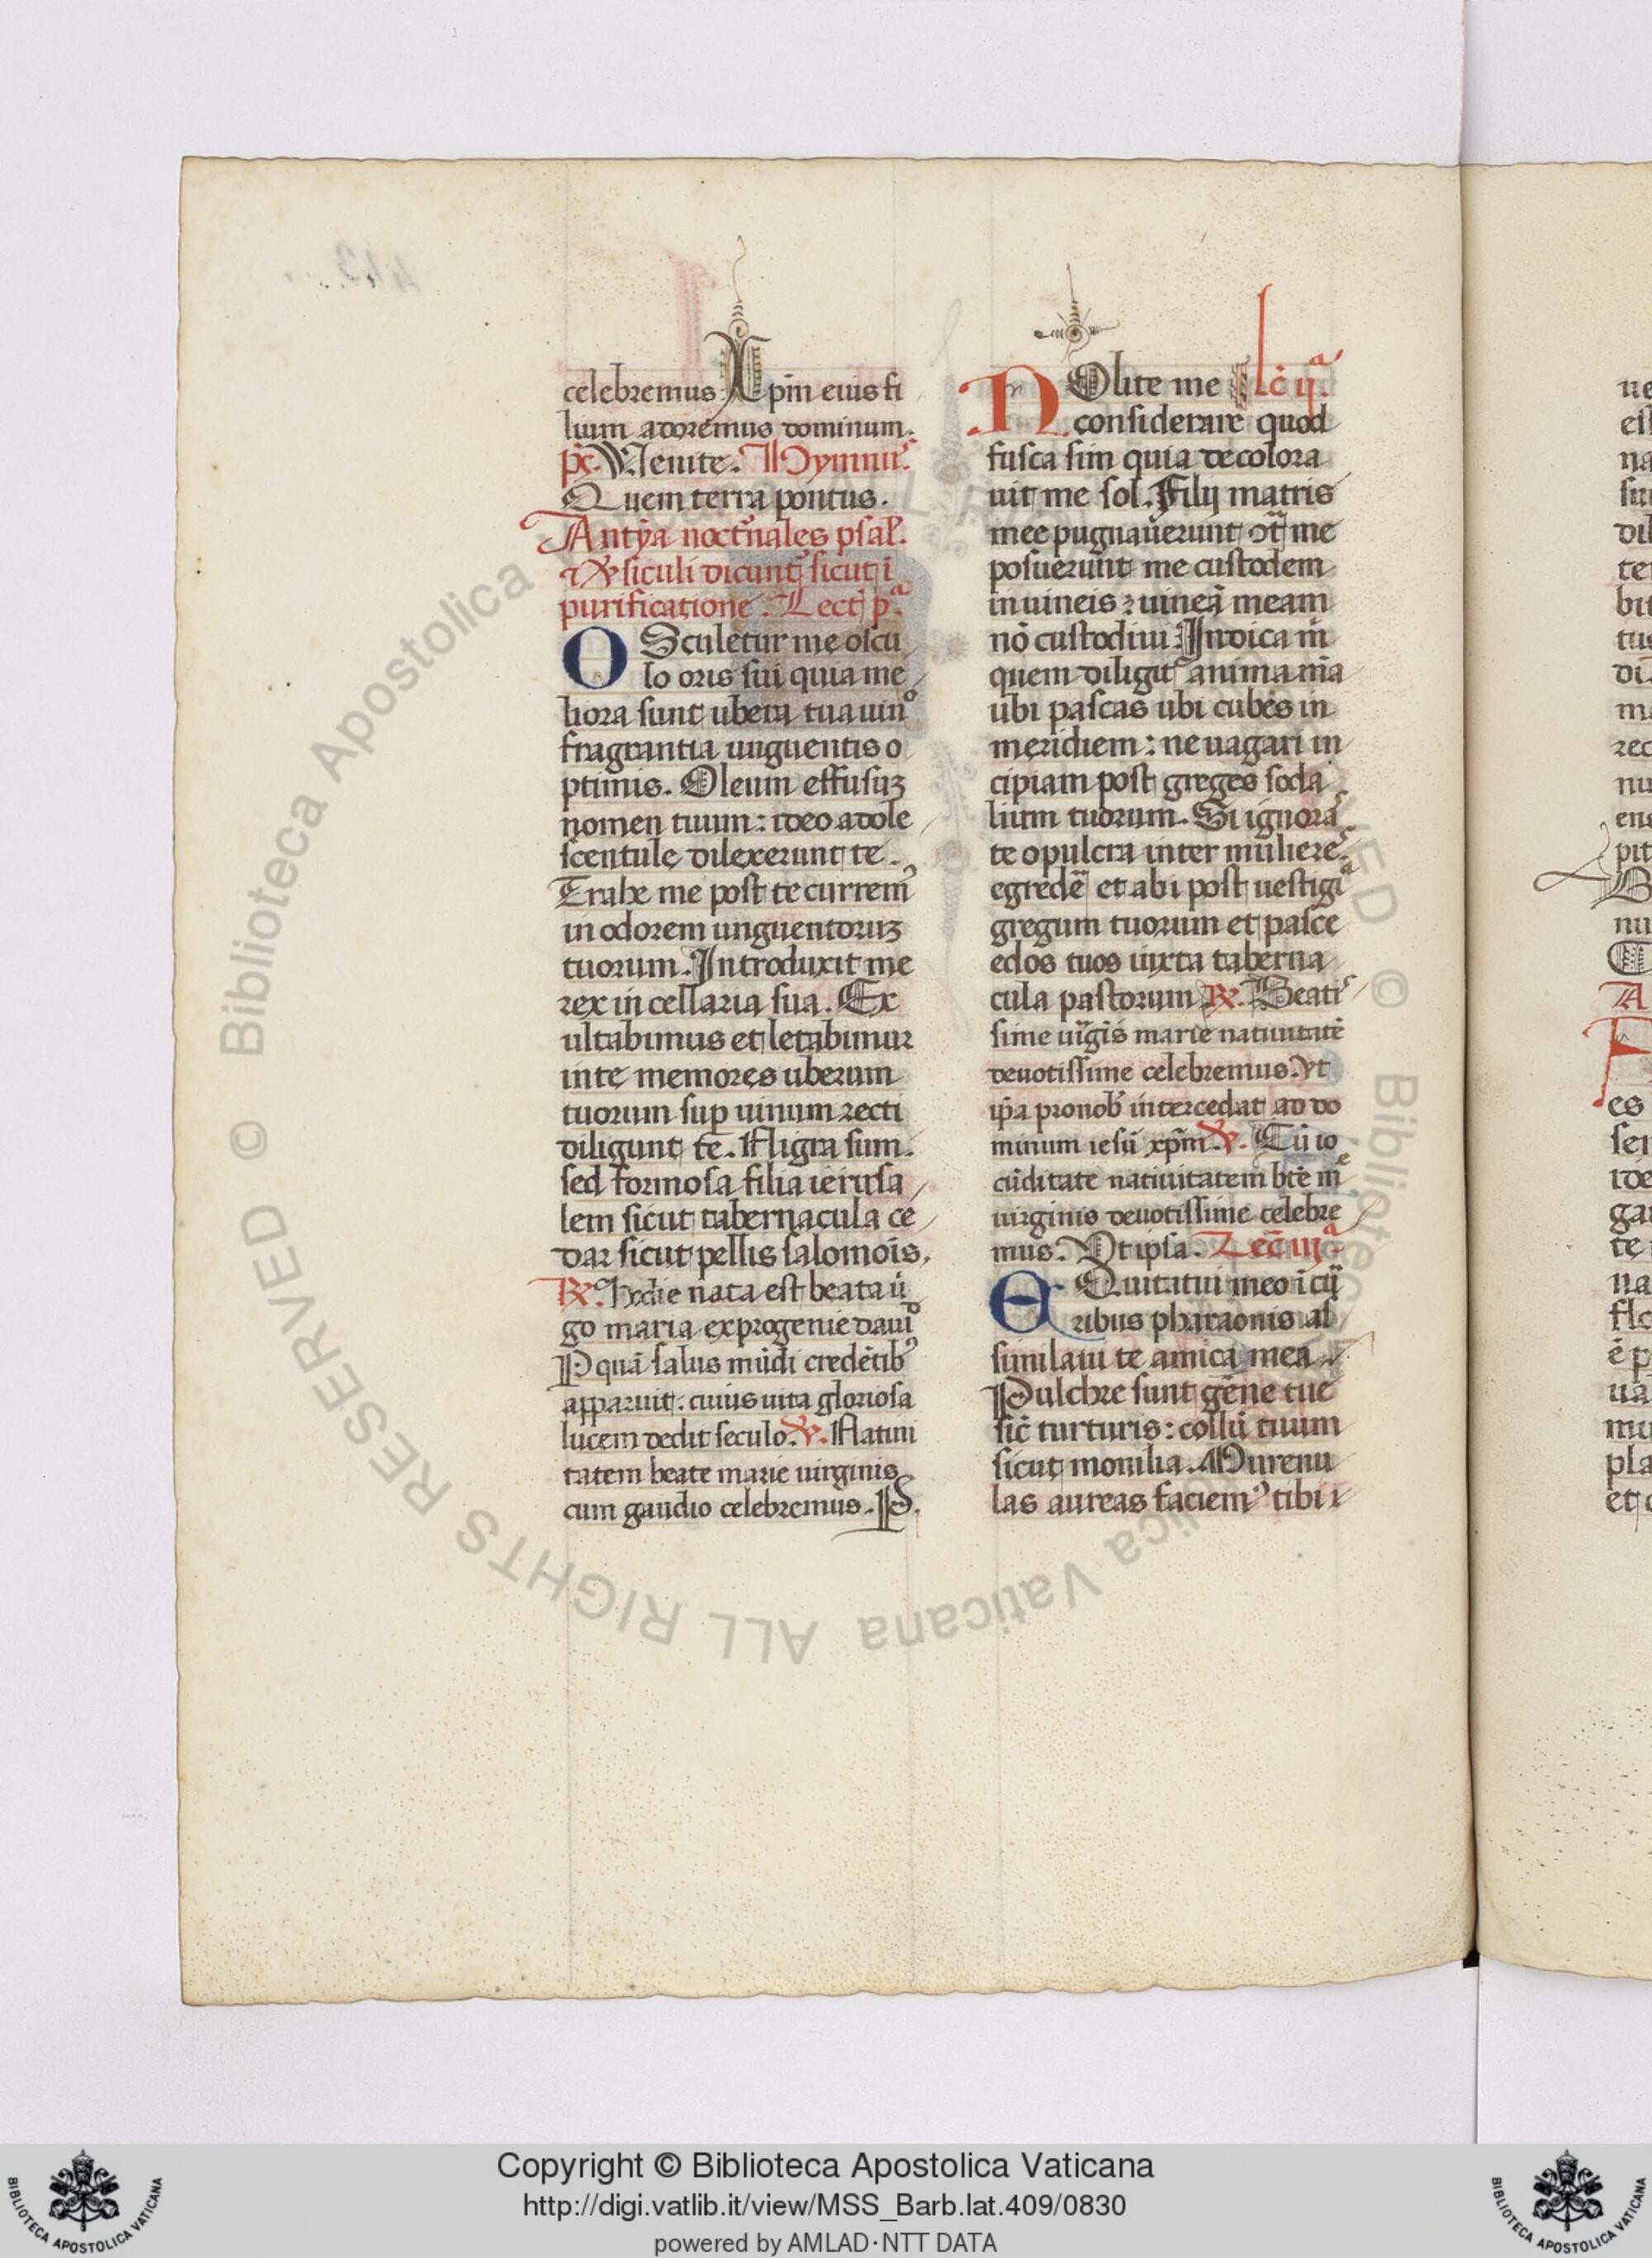 celebremus Xp̄m eius fi
lium adoremus dominum.
p̄s. Venite. Hymnus.
Quem terra pontus.
Antip̄a noct̄nales psal̄.
⁊ ℣siculi dicunt̄ sicut ī
purificatione. Lect̄ pª.
OSculetur me oscu
lo oris sui quia me
liora sunt ubera tua uinº
fragrantia unguentis o
ptimis. Oleum effusuꝫ
nomen tuum: ideo adole
scentule dilexerunt te.
Trahe me post te curremꝰ
in odorem unguentoruꝫ
tuorum. Introduxit me
rex in cellaria sua. Ex
ultabimus et letabimur
in te memores uberum
tuorum sup uinum recti
diligunt te. Nigra sum
sed formosa filia ierusa
lem sicut tabernacula ce
dar sicut pellis salomōis.
℟. Hodie nata est beata uir̄
go maria ex progenie dauid
P quā salus mūdi credētibꝰ
apparuit: cuius uita gloriosa
lucem dedit seculo. ℣. Natiui
tatem beate marie uirginis
cum gaudio celebremus. P.
NOlite me Lc̄ ijª.
considerare quod
fusca sim quia decolora
uit me sol. Filij matris
mee pugnauerunt ɔtª me
posuerunt me custodem
in uineis: uineā meam
nō custodiui. Indica m̄
quem diligit anima m̄a
ubi pascas ubi cubes in
meridiem: ne uagari in
cipiam post greges soda
lium tuorum. Si ignoras
te o pulcra inter mulieres
egredē et abi post uestigiª
gregum tuorum et pasce
edos tuos iuxta taberna
cula pastorum ℟. Beatis
sime uirgīs marie natiuitatē
deuotissime celebremus. Vt
ip̄a pro nobꝰ intercedat ad do
minum iesū xp̄m ℣. Cū io
cūditate natiuitatem btē me
uirginis deuotissime celebre
mus. Vt ipsa. Lec̄ iijª.
EQuitatui meo ī cur̄
ribus pharaonis as
similaui te amica mea
Pulchre sunt gēne tue
sic̄ turturis: collū tuum
sicut monilia. Murenu
las aureas faciemꝰ tibi i
Copyright © Biblioteca Apostolica Vaticana
http://digi.vatlib.it/view/MSS_Barb.lat.409/0830
powered by AMLAD·NTT DATA
© Biblioteca Apostolica Vaticana ALL RIGHTS RESERVED
BIBLIOTECA APOSTOLICA VATICANA
BIBLIOTECA APOSTOLICA VATICANA